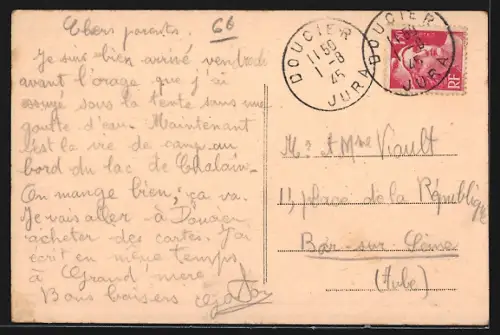 Chers parents. 66
Je suis bien arrivé vendredi
avant l'orage que j'ai
essuyé sous la tente sans une
goutte d'eau. Maintenant
c'est la vie de camp au
bord du lac de Chalain.
On mange bien; ça va.
Je vais aller à Doucier
acheter des cartes. J'ai
écrit en même temps
à Grand'mère
Bons baisers
DOUCIER
1150
1-8
45
JURA
DOUCIER
1150
1-8
45
JURA
RF
Mr et Mme Viault
11, place de la République
Bar-sur-Seine
(Aube)